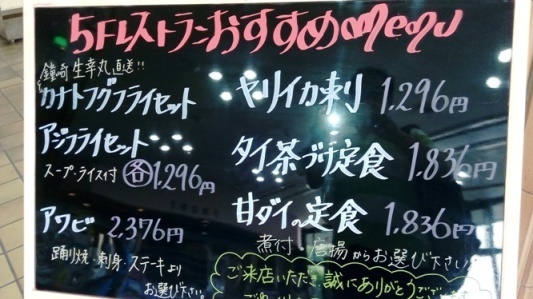 5Fレストランおすすめmenu
鐘崎 生幸丸 直送!!
カナトフグフライセット
アジフライセット
スープ・ライス付 各1.296円
アワビ 2,376円
踊り焼・刺身・ステーキより
お選び下さい。
ヤリイカ刺 1.296円
タイ茶づけ定食 1,836円
甘ダイの定食 1,836円
煮付 唐揚からお選び下さい
ご来店いただき、誠にありがとうござ